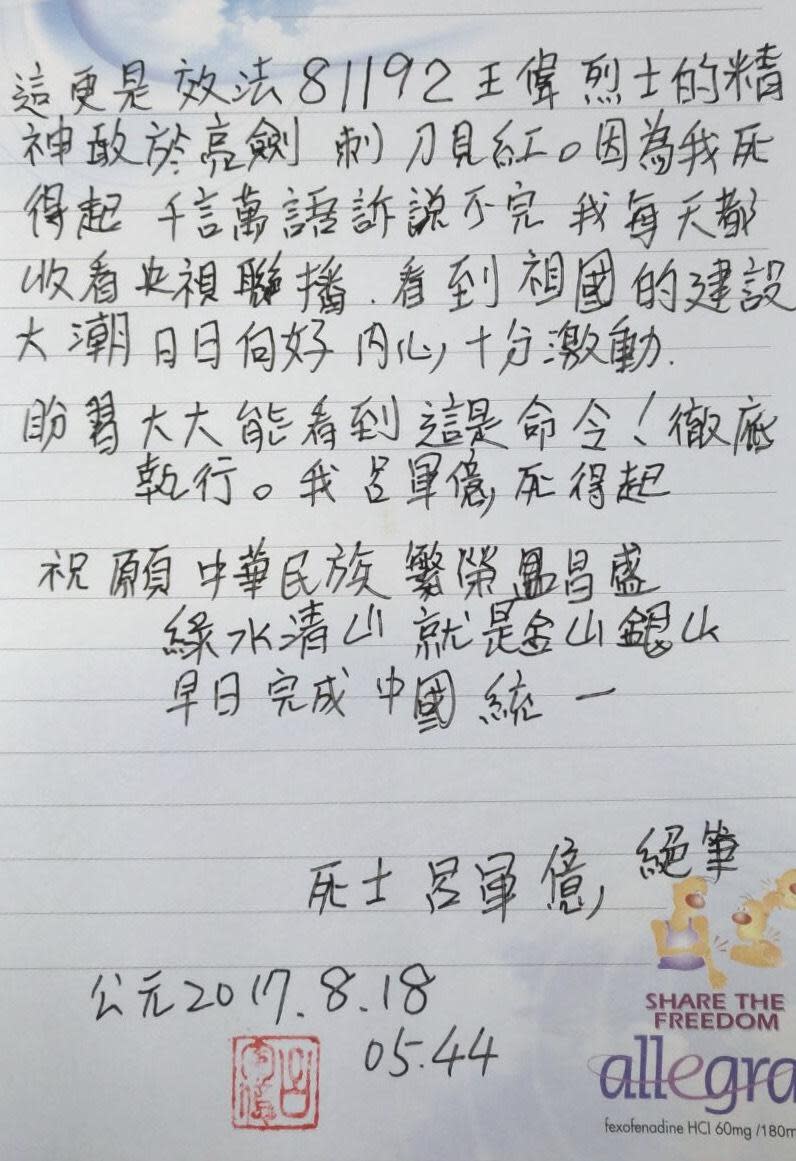 這更是效法81192王偉烈士的精
神敢於亮劍 刺刀見紅。因為我死
得起 千言萬語訴說不完 我每天都
收看央視聯播.看到祖國的建設
大潮日日向好 內心,十分激動.
盼習大大能看到這是命令!徹底
執行。我呂軍億,死得起
祝願中華民族繁榮昌盛
綠水清山 就是金山銀山
早日完成中國統一
死士呂軍億,絕筆
公元2017.8.18
05.44
SHARE THE
FREEDOM
allegra
fexofenadine HCl 60mg /180m